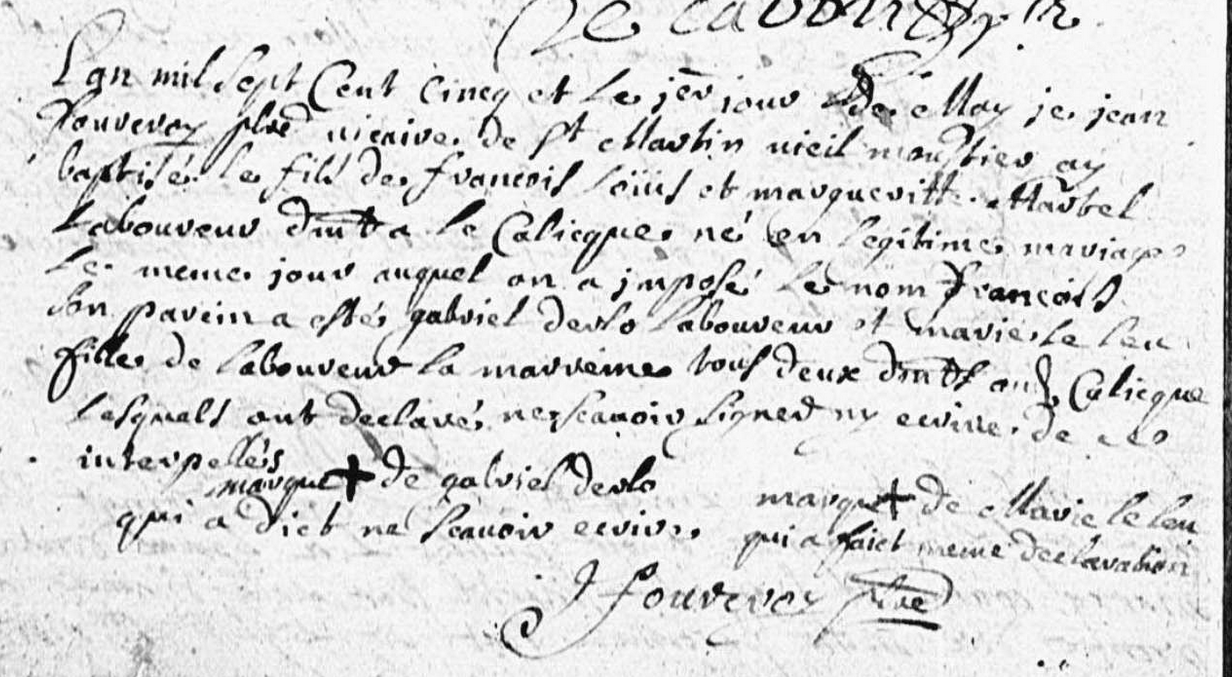 Lan mil sept Cent cincq et le jer jour de May je jean
fourcroy ptre vicaire de st Martin vieil moustier ay
baptisé le fils de francois Loüis et margueritte Martel
Laboureur dmtt a le Calicque né en legitime mariage
le meme jour auquel on a imposé le nom francois
son parein a esté gabriel derlo laboureur et marie le leu
fille de laboureur la marreine tous deux dmtts au Calicque
lesquels ont declaré ne scauoir signer ny ecrire de ce
interpellés
marque + de gabriel derlo marque + de Marie le leu
qui a dict ne scauoir ecrire qui a faict meme declaration
J fourcroy ptre